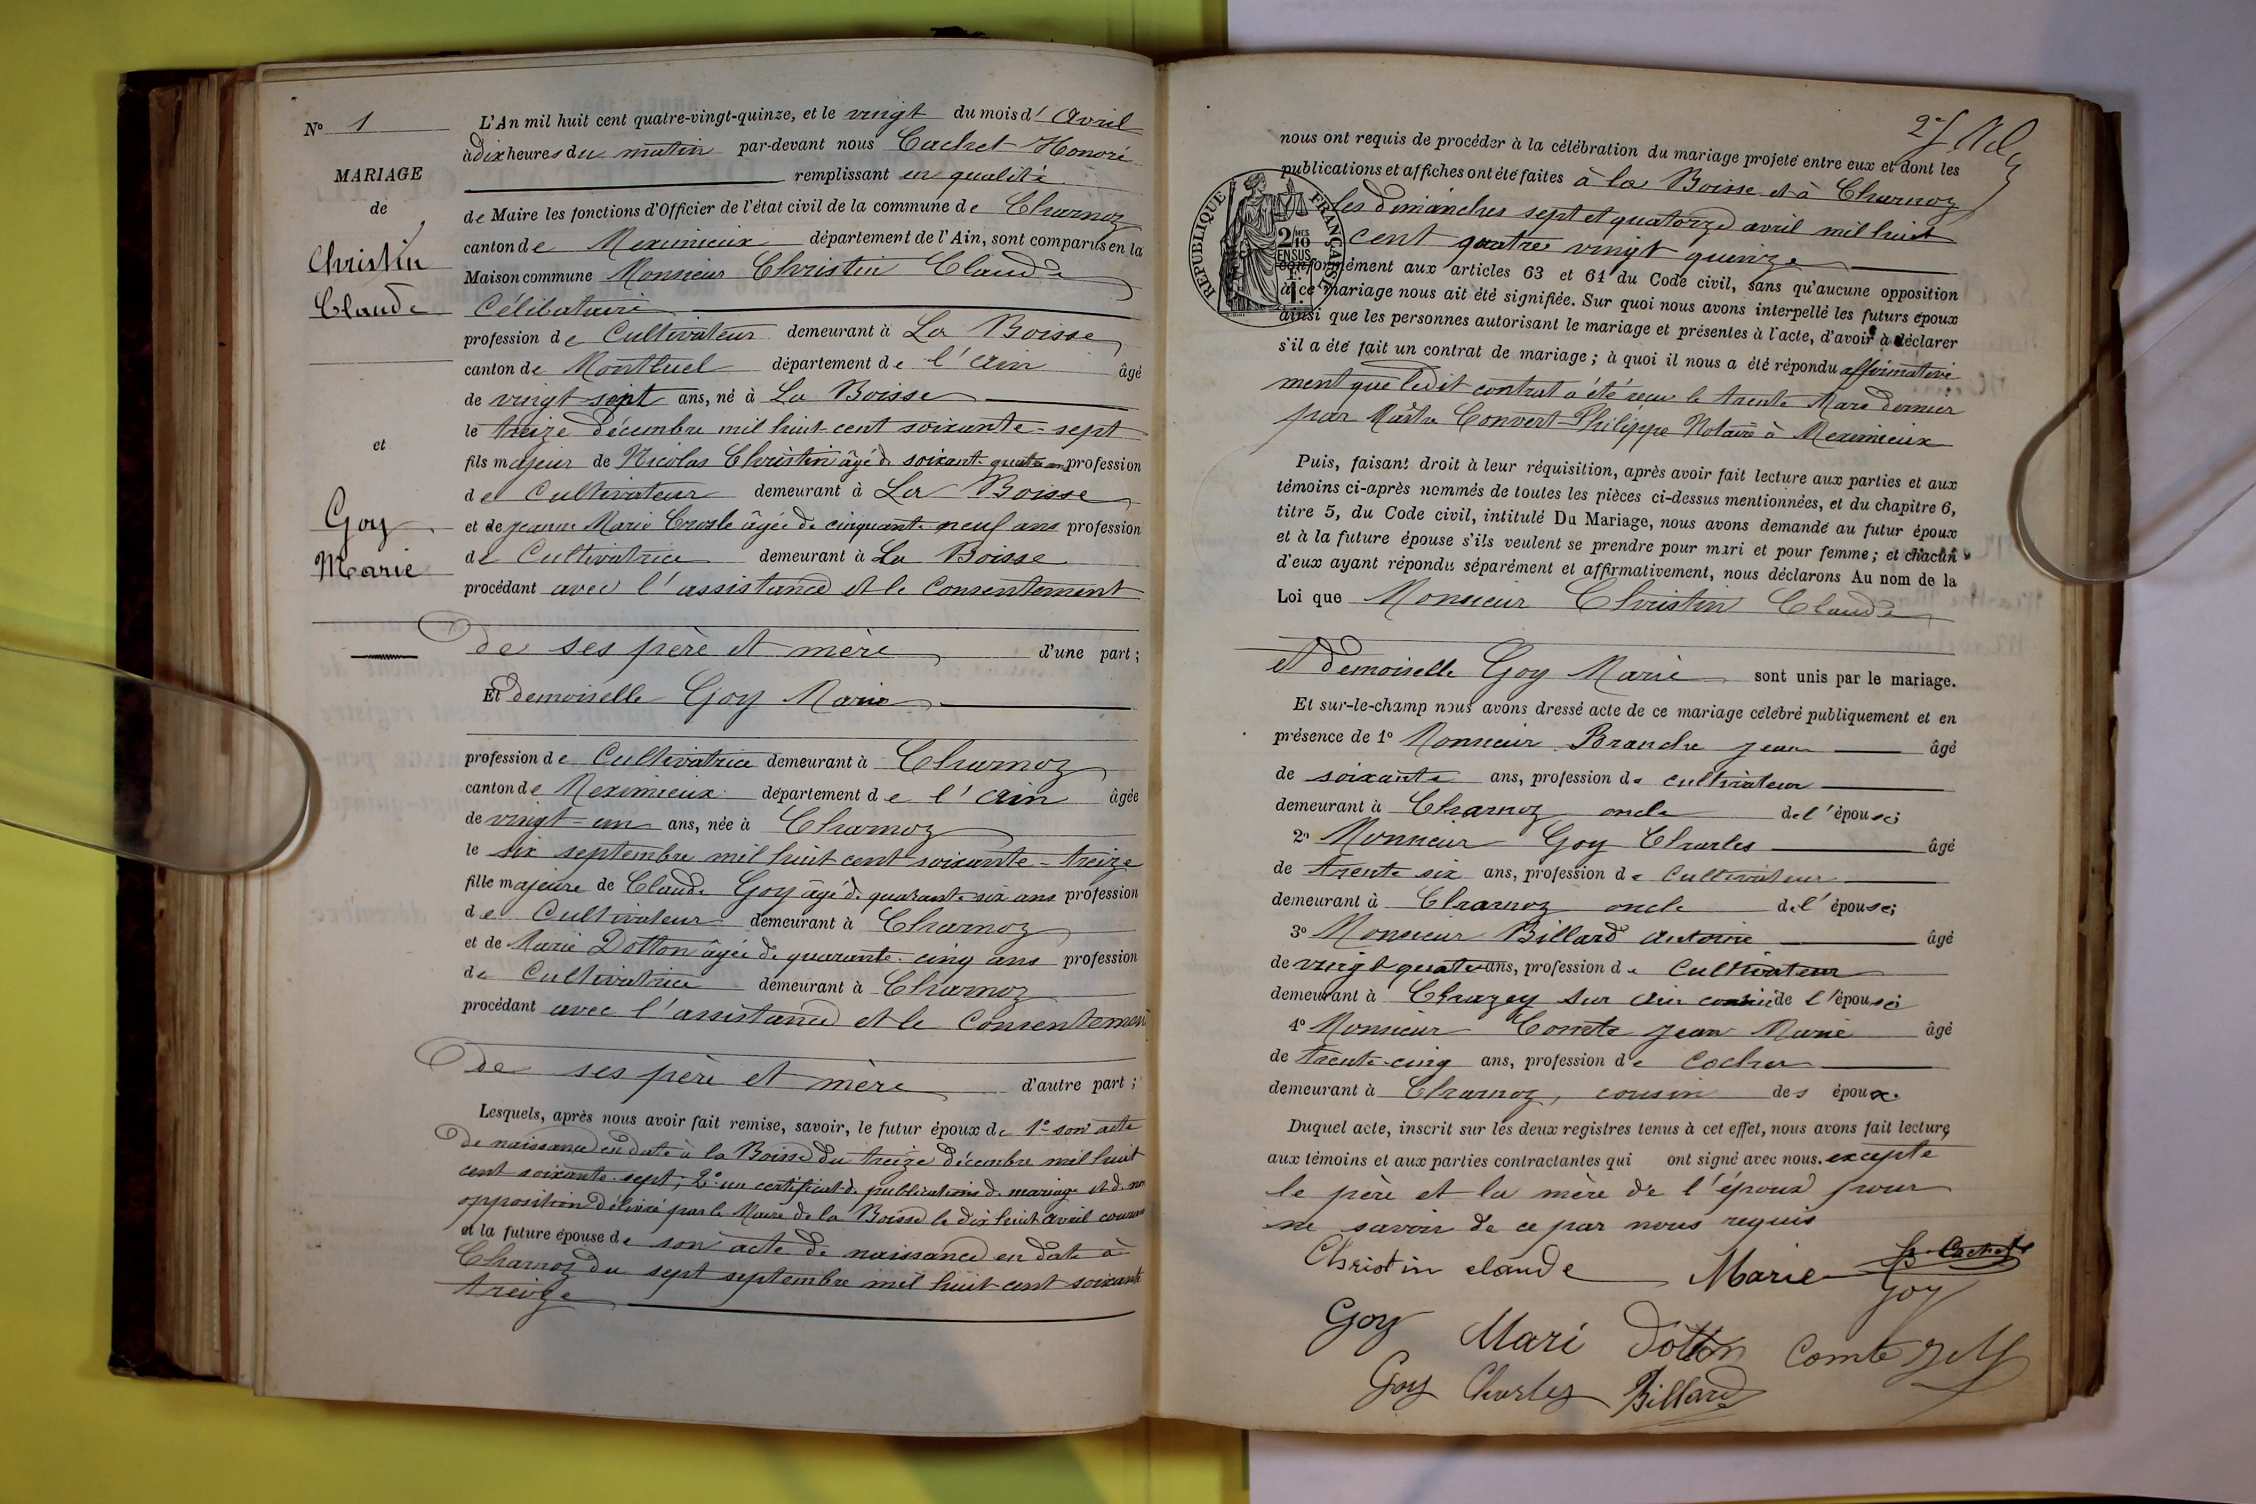 N° 1
MARIAGE
de
Christin
Claude
et
Goy
Marie
L'An mil huit cent quatre-vingt-quinze, et le vingt du mois d' Avril
à dix heures du matin par-devant nous Cachet Honoré
remplissant en qualité
de Maire les fonctions d'Officier de l'état civil de la commune de Charnoz
canton de Meximieux département de l'Ain, sont comparus en la
Maison commune Monsieur Christin Claude
Célibataire
profession de Cultivateur demeurant à La Boisse
canton de Montluel département de l'Ain âgé
de vingt-sept ans, né à La Boisse
le treize décembre mil huit-cent soixante-sept
fils majeur de Nicolas Christin âgé de soixante-quatre ans profession
de Cultivateur demeurant à La Boisse
et de Jeanne Marie âgée de cinquante-neuf ans profession
de Cultivatrice demeurant à La Boisse
procédant avec l'assistance et le consentement
de ses père et mère d'une part ;
Et demoiselle Goy Marie
profession de Cultivatrice demeurant à Charnoz
canton de Meximieux département de l'Ain âgée
de vingt-un ans, née à Charnoz
le six septembre mil huit cent soixante-treize
fille majeure de Claude Goy âgé de quarante-six ans profession
de Cultivateur demeurant à Charnoz
et de Marie Dotton âgée de quarante-cinq ans profession
de Cultivatrice demeurant à Charnoz
procédant avec l'assistance et le Consentement
de ses père et mère d'autre part ;
Lesquels, après nous avoir fait remise, savoir, le futur époux de 1° son acte
de naissance en date à la Boisse du treize décembre mil huit
cent soixante-sept ; 2° un certificat de publications de mariage et de non
opposition délivré par le Maire de la Boisse le dix huit avril courant
et la future épouse de son acte de naissance en date à
Charnoz du sept septembre mil huit cent soixante
treize
nous ont requis de procéder à la célébration du mariage projeté entre eux et dont les
publications et affiches ont été faites à la Boisse et à Charnoz
les dimanches sept et quatorze avril mil huit
cent quatre vingt quinze
conformément aux articles 63 et 64 du Code civil, sans qu'aucune opposition
à ce mariage nous ait été signifiée. Sur quoi nous avons interpellé les futurs époux
ainsi que les personnes autorisant le mariage et présentes à l'acte, d'avoir à déclarer
s'il a été fait un contrat de mariage ; à quoi il nous a été répondu affirmative
ment que ledit contrat a été reçu le trente Mars dernier
par Maître Convert Philippe Notaire à Meximieux
REPUBLIQUE FRANÇAISE
2/10
EN SUS
Puis, faisant droit à leur réquisition, après avoir fait lecture aux parties et aux
témoins ci-après nommés de toutes les pièces ci-dessus mentionnées, et du chapitre 6,
titre 5, du Code civil, intitulé Du Mariage, nous avons demandé au futur époux
et à la future épouse s'ils veulent se prendre pour mari et pour femme ; et chacun
d'eux ayant répondu séparément et affirmativement, nous déclarons Au nom de la
Loi que Monsieur Christin Claude
et demoiselle Goy Marie sont unis par le mariage.
Et sur-le-champ nous avons dressé acte de ce mariage célébré publiquement et en
présence de 1° Monsieur Branche Jean âgé
de soixante ans, profession de cultivateur
demeurant à Charnoz oncle de l'épouse ;
2° Monsieur Goy Charles âgé
de trente six ans, profession de Cultivateur
demeurant à Charnoz oncle de l'épouse ;
3° Monsieur Billard Antoine âgé
de vingt-quatre ans, profession de Cultivateur
demeurant à Chazey sur Ain cousin de l'épouse ;
4° Monsieur Comte Jean Marie âgé
de trente-cinq ans, profession de Cocher
demeurant à Charnoz, cousin des époux.
Duquel acte, inscrit sur les deux registres tenus à cet effet, nous avons fait lecture
aux témoins et aux parties contractantes qui ont signé avec nous. excepté
le père et la mère de l'époux pour
ne savoir de ce par nous requis
Christin claude Marie Goy h. Cachet
Goy Mari Dotton Comte J M
Goy Charles Billard